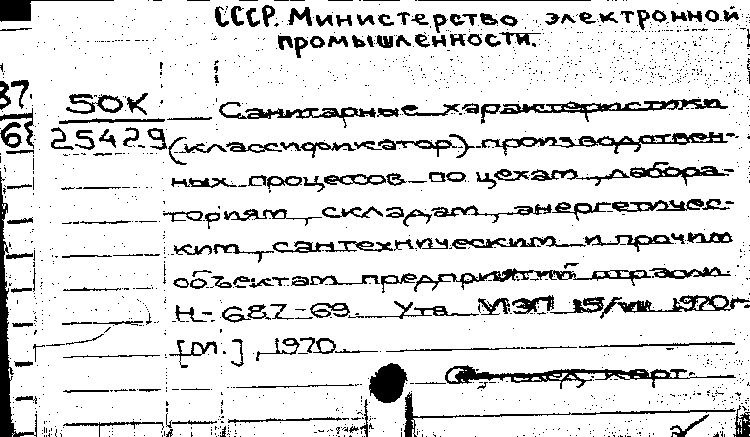 СССР. Министерство электронной
промышленности.
87
50К
Санитарные характеристики
68
25429
(классификатор) производствен-
ных процессов по цехам, лабора-
ториям, складам, энергетичес-
ким, сантехническим и прочим
объектам предприятий отрасли
Н-687-69. Утв. МЭП 15/VII 1970г.
[М.], 1970.
след. карт.